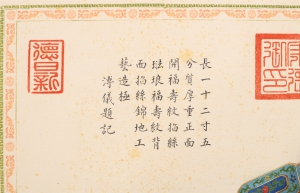 長一十二寸五
分質厚重正面
開福壽紋描絲
琺瑯福壽紋背
面描絲錦地工
藝造極
溥儀題記
德日新